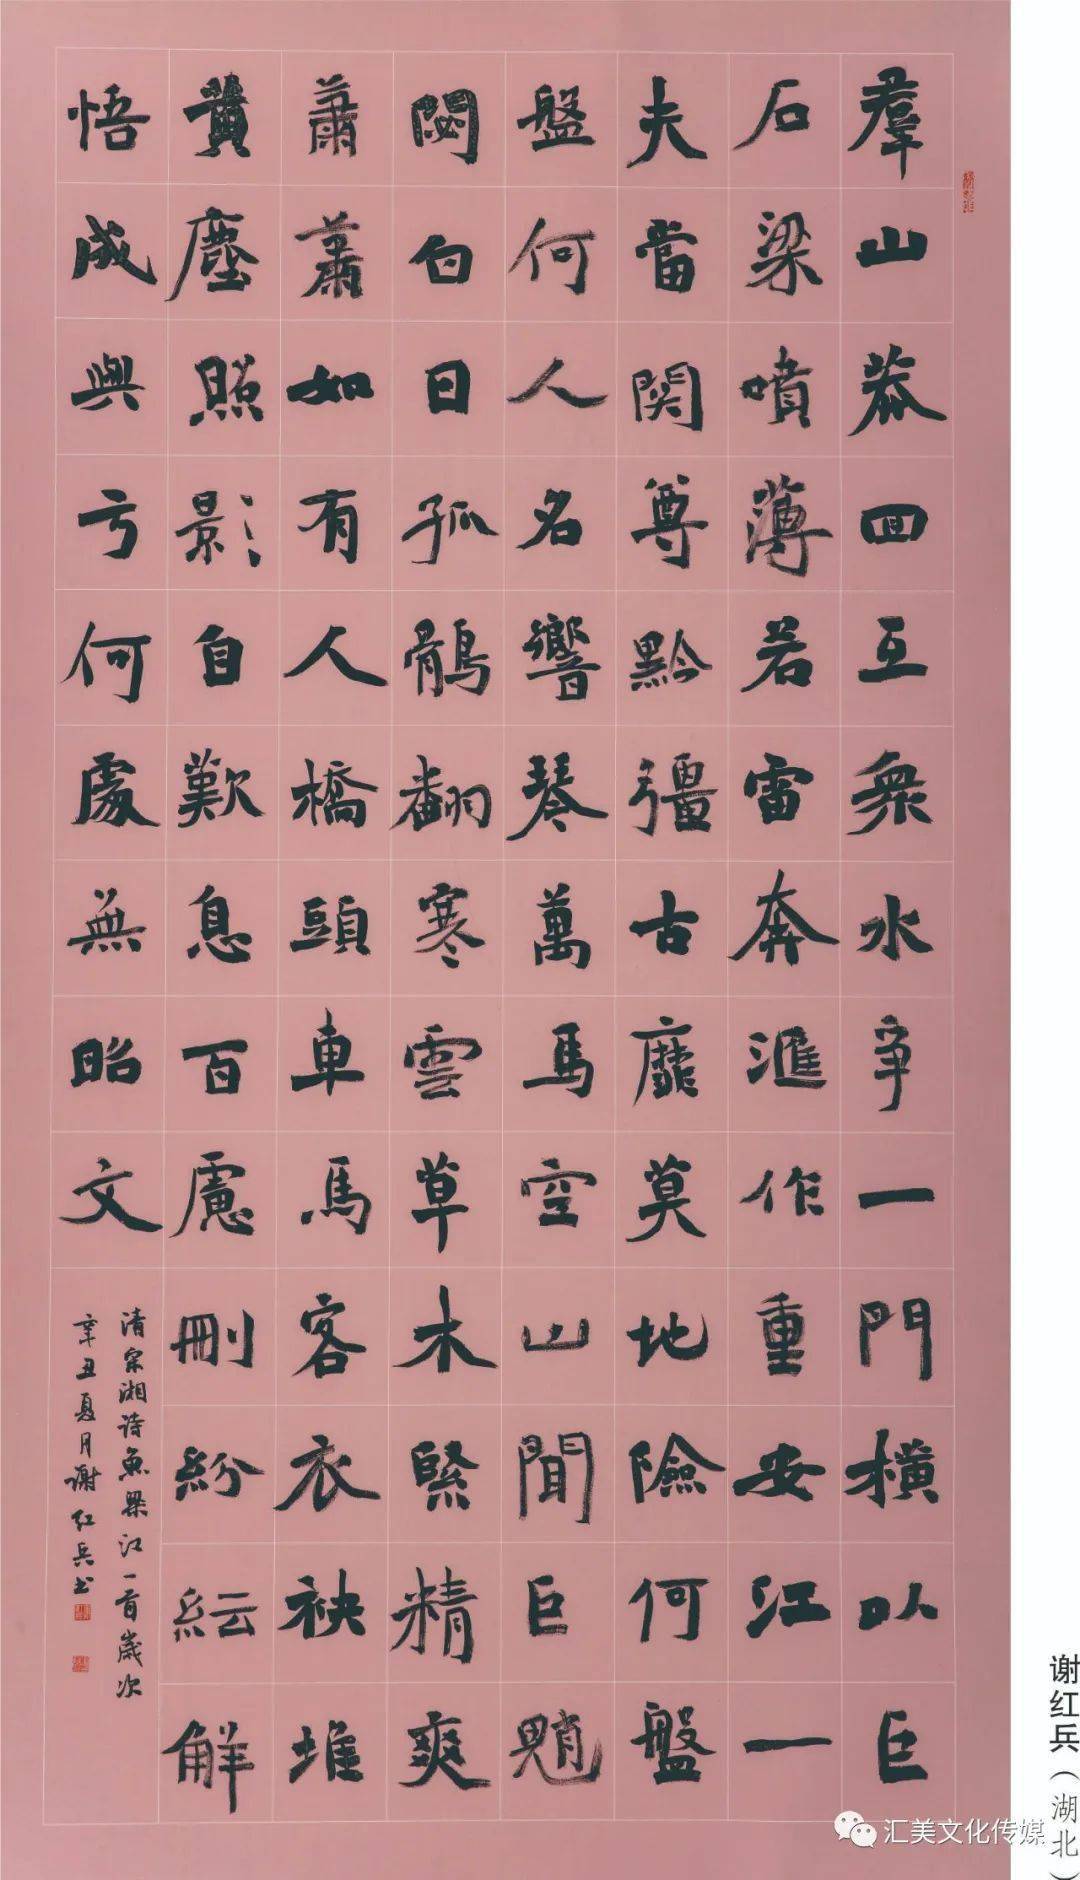 羣山莽回互衆水爭一門橫以巨
石梁噴薄若雷奔滙作重安江一
夫當関尊黔疆古靡莫地險何盤
盤何人名響琴萬馬空山聞巨魈
閟白日孤鶻翻寒雲草木緊精爽
蕭蕭如有人橋頭車馬客衣袂堆
黃塵照影自歎息百慮刪紛紜解
悟成與亏何處無昭文
清宋湘诗魚梁江一首歲次
辛丑夏月谢红兵书
谢红兵（湖北）
汇美文化传媒